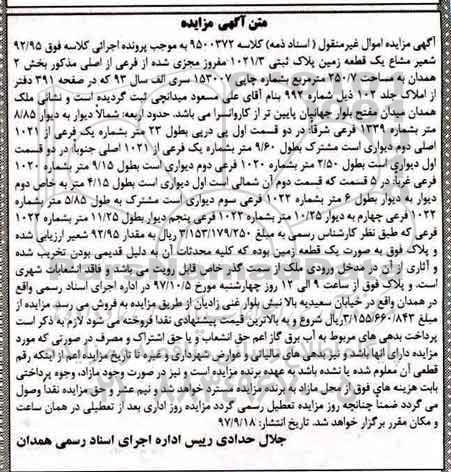 متن آگهی مزایده
آگهی مزایده اموال غیرمنقول ( اسناد ذمه) کلاسه ۹۵۰۰۳۷۲ به موجب پرونده اجرائی کلاسه فوق ۹۲/۹۵
شعیر مشاع یک قطعه زمین پلاک ثبتی ۱۰۲۱/۳ مفروز مجزی شده از فرعی از اصلی مذکور بخش ۲
همدان به مساحت ۲۵۰/۷ مترمربع بشماره چاپی ۱۵۳۰۰۷ سری الف سال ۹۳ که در صفحه ۳۹۱ دفتر
از املاک جلد ۱۰۲ ذیل شماره ۹۹۲ بنام آقای علی مسعود میدانچی ثبت گردیده است و نشانی ملک
همدان میدان مفتح بلوار جهانیان پایین تر از کاروانسرا می باشد. حدود اربعه: شمالا دیوار به دیوار ۸/۸۵
متر بشماره ۱۳۳۹ فرعی شرقا: در دو قسمت اول پی درپی بطول ۲۳ متر بشماره یک فرعی از ۱۰۲۱
اصلی دوم دیواری است مشترک بطول ۹/۶۰ متر بشماره یک فرعی از ۱۰۲۱ اصلی جنوبا: در دو قسمت
اول دیواری است بطول ۲/۵۰ متر بشماره ۱۰۲۰ فرعی دوم دیواری است بطول ۹/۱۵ متر بشماره ۱۰۲۰
فرعی غربا: در ۵ قسمت که قسمت دوم آن شمالی است اول دیواری است بطول ۴/۱۵ متر به خاص دوم
دیوار به دیوار بطول ۶ متر بشماره ۱۰۲۲ فرعی سوم دیواری است مشترک به طول ۵/۸۵ متر بشماره
۱۰۲۲ فرعی چهارم به دیوار ۱۰/۲۵ متر بشماره ۱۰۲۲ فرعی پنجم دیوار بطول ۱۱/۲۵ متر بشماره ۱۰۲۲
فرعی که طبق نظر کارشناس رسمی به مبلغ ۳/۱۵۳/۱۷۹/۲۵۰ ریال به مقدار ۹۲/۹۵ شعیر ارزیابی شده
و پلاک فوق به صورت یک قطعه زمین بوده که کلیه محدثات آن به دلیل قدیمی بودن تخریب شده
و آثاری از آن در مدخل ورودی ملک از سمت گذر خاص قابل رویت می باشد و فاقد انشعابات شهری
است، و پلاک فوق از ساعت ۹ الی ۱۲ روز چهارشنبه مورخ ۹۷/۱۰/۵ در اداره اجرای اسناد رسمی واقع
در همدان واقع در خیابان سعیدیه بالا نبش بلوار غنی زادیان از طریق مزایده به فروش می رسد. مزایده از
مبلغ ۳/۱۵۵/۶۶۰/۸۴۳ ریال شروع و به بالاترین قیمت پیشنهادی نقدا فروخته می شود لازم به ذکر است
پرداخت بدهی های مربوط به آب برق گاز اعم حق انشعاب و یا حق اشتراک و مصرف در صورتی که مورد
مزایده دارای آنها باشد و نیز بدهی های مالیاتی و عوارض شهرداری وغیره تا تاریخ مزایده اعم از اینکه رقم
قطعی آن معلوم شده یا نشده باشد به عهده برنده مزایده است و نیز در صورت وجود مازاد، وجوه پرداختی
بابت هزینه های فوق از محل مازاد به برنده مزایده مسترد خواهد شد و نیم عشر و حق مزایده نقدا وصول
می گردد ضمناً چنانچه روز مزایده تعطیل رسمی گردد مزایده روز اداری بعد از تعطیلی در همان ساعت
و مکان مقرر برگزار خواهد شد. تاریخ انتشار: ۹۷/۹/۱۸
جلال حدادی رییس اداره اجرای اسناد رسمی همدان